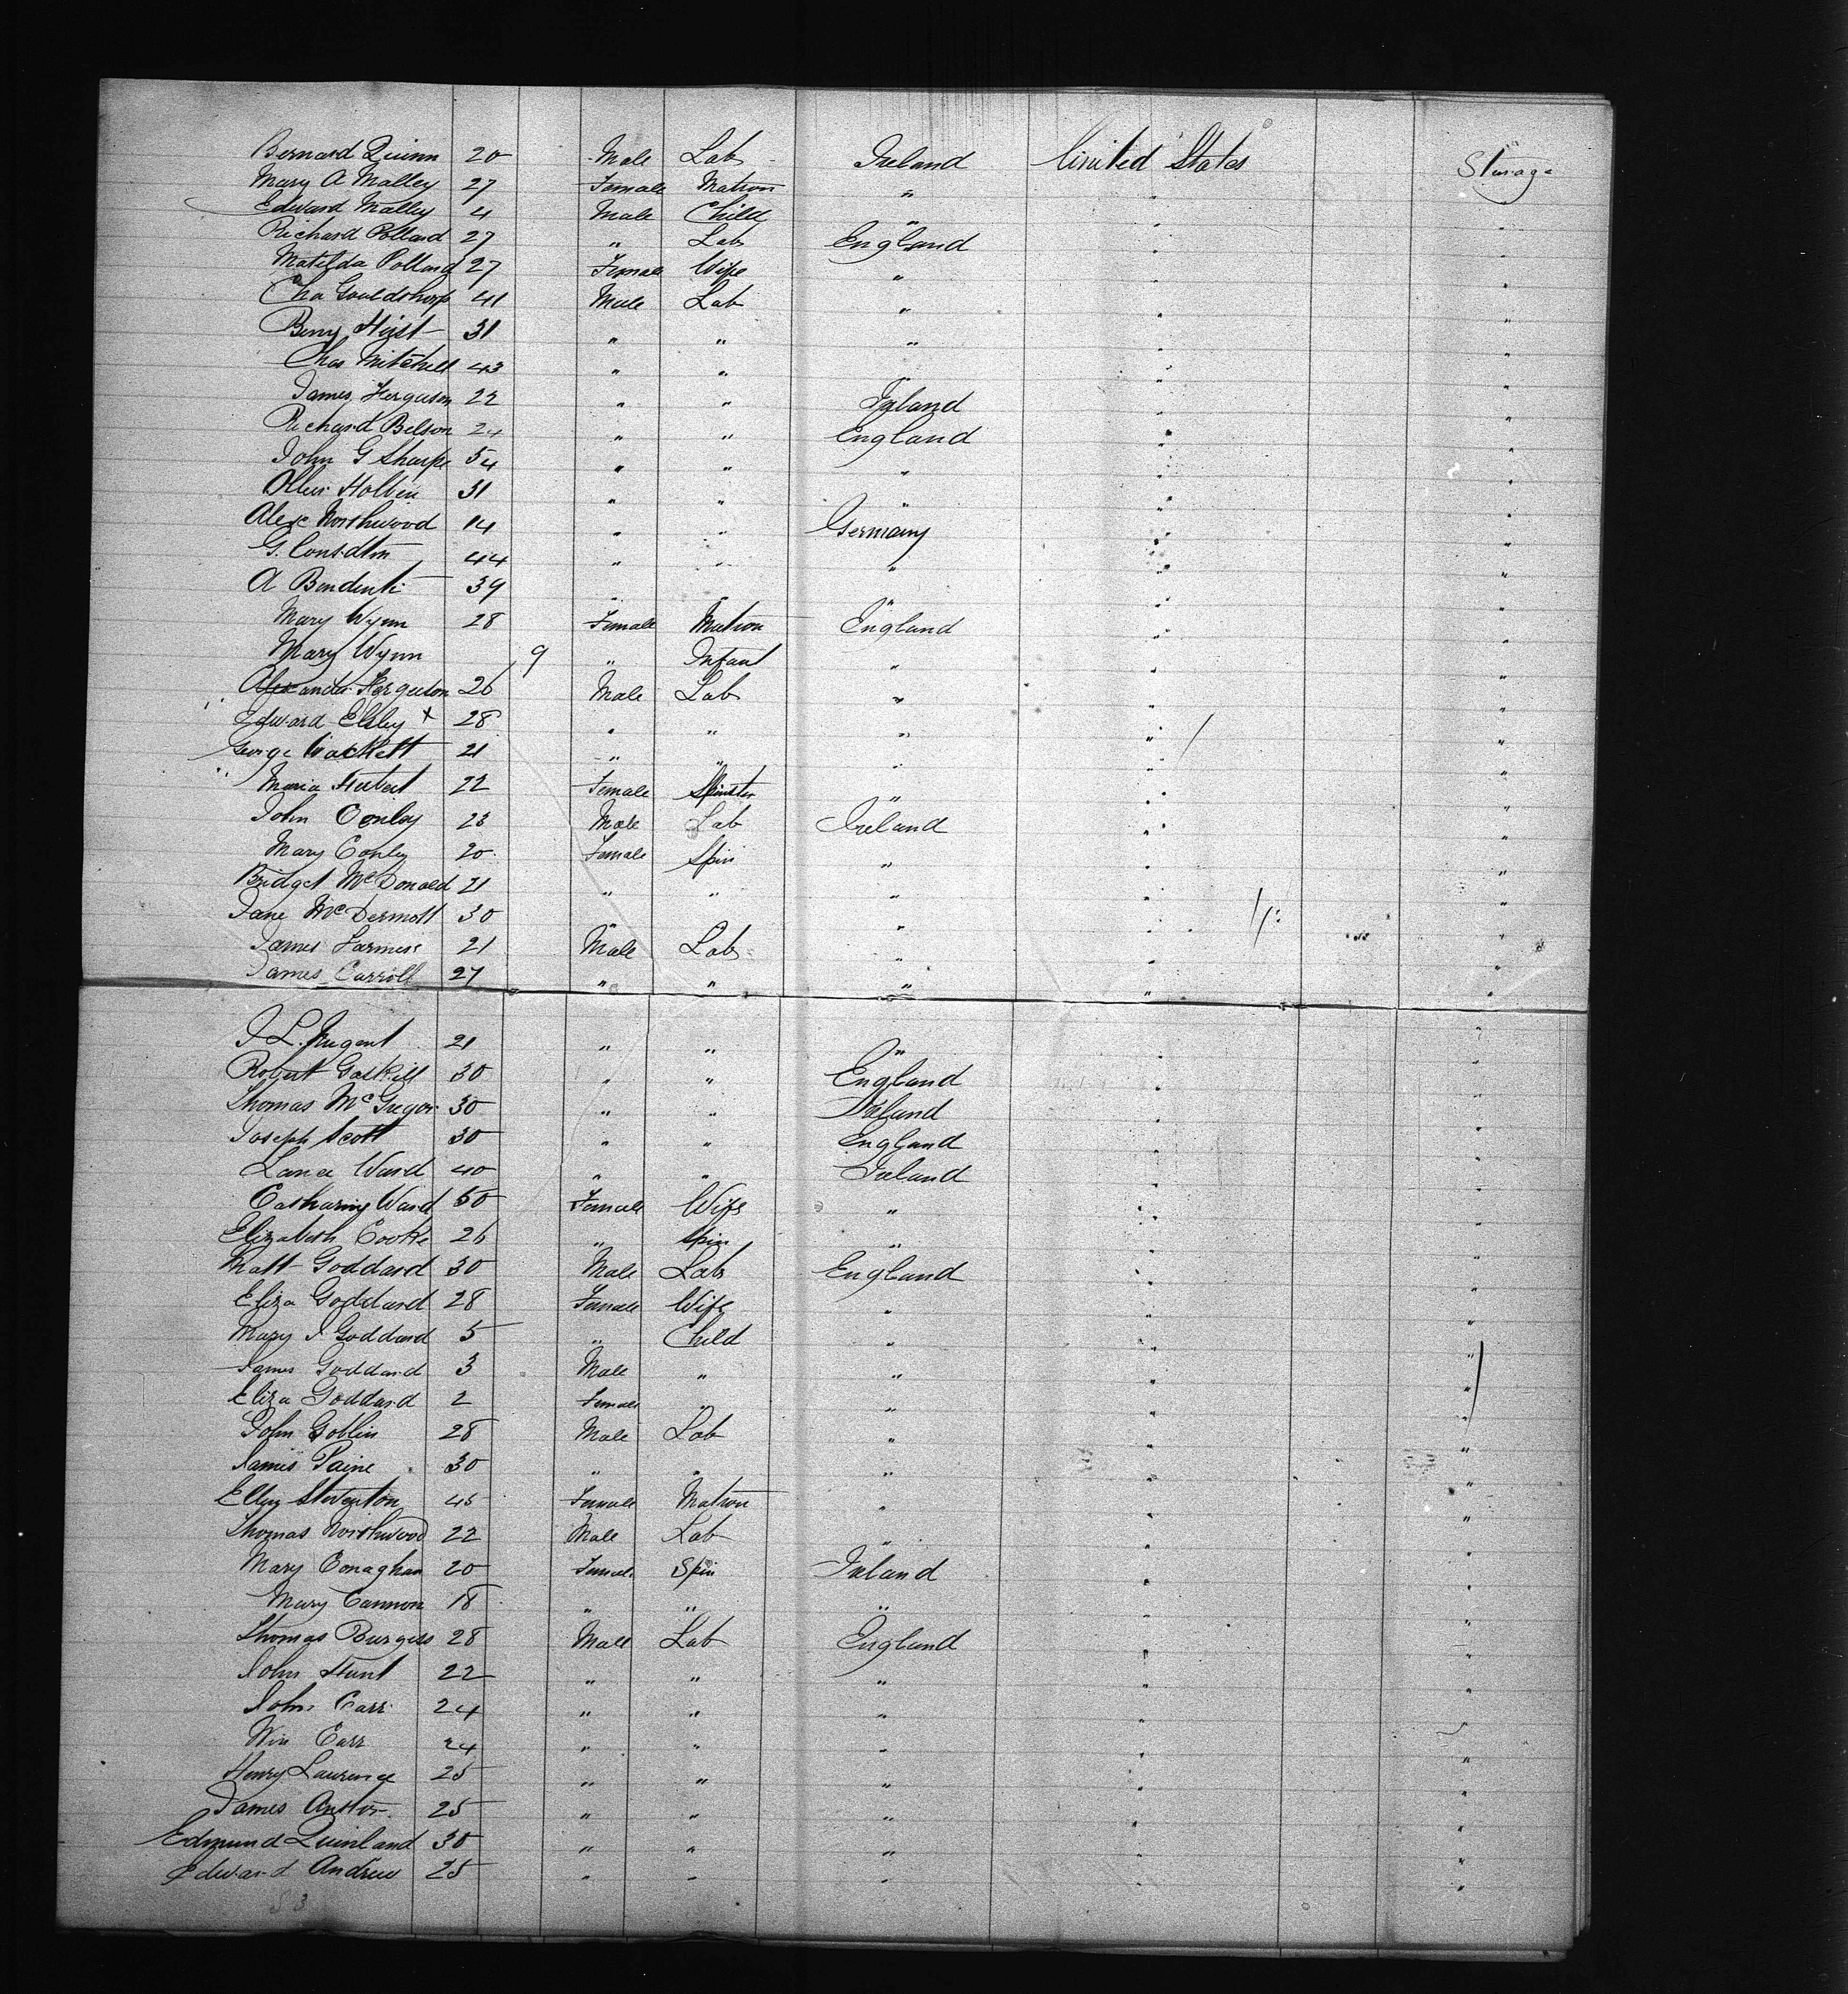 Bernard Quinn 20 Male Lab Ireland United States Steerage
Mary A Malley 27 Female Matron " " "
Edward Malley 4 Male Child " " "
Richard Pollard 27 " Lab England " "
Matilda Pollard 27 Female Wife " " "
Cha Gouldthorp 41 Male Lab " " "
Benj Hirst 31 " " " " "
Chas Mitchell 43 " " " " "
James Ferguson 22 " " Ireland " "
Richard Belson 24 " " England " "
John G Sharpe 54 " " " " "
31 " " " " "
Alex Northwood 14 " " Germany " "
G. 44 " " " " "
A 39 " " " " "
Mary Wynn 28 Female Matron England " "
Mary Wynn 9 " Infant " " "
Alexander Ferguson 26 Male Lab " " "
Edward Elsley x 28 " " " " "
George Wackett 21 " " " " "
Maria Hubert 22 Female Spinster " " "
John Conley 23 Male Lab Ireland " "
Mary Conley 20 Female Spin " " "
Bridget McDonald 21 " " " " "
Jane McDermott 30 " " " " "
James 21 Male Lab " " "
James Carroll 27 " " " " "
J L. Nugent 21 " " " " "
Robert Gaskill 30 " " England " "
Thomas McGregor 30 " " Ireland " "
Joseph Scott 30 " " England " "
Ward 40 " " Ireland " "
Catharine Ward 50 Female Wife " " "
Elizabeth Cooke 26 " Spin " " "
Matt Goddard 30 Male Lab England " "
Eliza Goddard 28 Female Wife " " "
Mary J Goddard 5 " Child " " "
James Goddard 3 Male " " " "
Eliza Goddard 2 Female " " " "
John Goblin 28 Male Lab " " "
James Paine 30 " " " " "
Ellen Steventon 45 Female Matron " " "
Thomas Northwood 22 Male Lab " " "
Mary Conaghan 20 Female Spin Ireland " "
Mary Cannon 18 " " " " "
Thomas Burgess 28 Male Lab England " "
John Hunt 22 " " " " "
John Carr 24 " " " " "
Wm Carr 24 " " " " "
Henry Laurence 25 " " " " "
James 25 " " " " "
Edmund Quinland 30 " " " " "
Edward Andrew 25 " " " " "
53